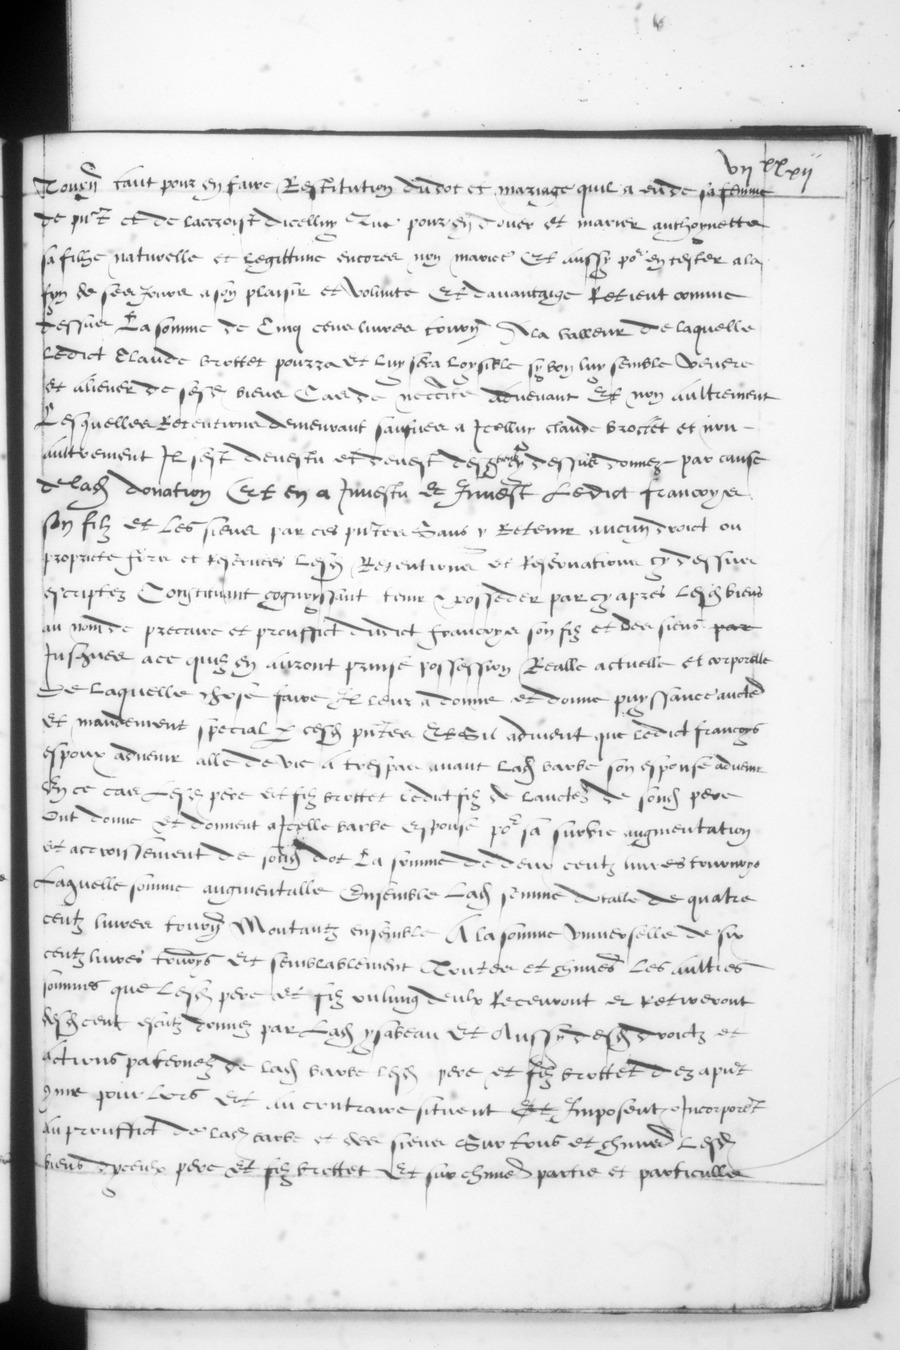 vij xx xij
tourn tant pour en faire Restitution du dot et mariage quil a eu de sa femme
de pnt et de laccroist dicelluy Que pour en douer et marier anthoynette
sa filhe naturelle et legittime encores non mariee Et aussy por en tester a la
fyn de ses Jours a son plaisir et volunte Et davantaige Retient comme
dessus La somme de Cinq cens livres tourn A la valleur de laquelle
ledict Claude brottet pourra et luy sera loysible sy bon luy semble vendre
et aliener de sesd biens Cas de neccite advenant Et non aultrement
Lesquelles Retentions demeurant sauvees a Icelluy claude brottet et non
aultrement Il sest devestu et devest desd biens dessus donnez par cause
de lad donation Et en a Investu et Invest Ledict francoys
son filz et les siens par ces pntes Sans y Retenir aucun droict ou
propriete fors et reserves lesd Retentions et Reservations cy dessus
escriptes Constituant cognoyssant tenir posseder par cy apres lesd biens
au nom de precaire et prouffict dudict francoys son filz et des siens
Jusques a ce quilz en auront prinse possession Realle actuelle et corporelle
De laquelle chose faire Il leur a donne et donne puyssance aucte
et mandement special p cesd pntes Et Sil advient que ledict francoys
espoux advenir alle de vie a trespas avant lad barbe son espouse advenir
En ce cas Lesd pere et filz brottet ledict filz de laucte de sond pere
Ont donne et donnent a Icelle barbe espouse por sa survie augmentation
et accroissement de sond dot La somme de deux centz livres tournoys
Laquelle somme augmentalle Ensemble lad somme dotalle de quatre
centz livres tourn Montantz ensemble A la somme universelle de six
centz livres tourns Et semblablement Toutes et chunes les aultres
sommes que lesd pere et filz ou lung deulx Recevront et retireront
desd cent escutz donnez par lad ysabeau Et Aussy desd droictz et
actions paternelz de lad barbe lesd pere et filz brottet dez a pnt
come pour lors Et au contraire situent Et Imposent Incorporent
au prouffict de lad barbe et des siens Sur tous et chuns Lesd
biens dyceulx pere Et filz brottet Et sur chune partie et particulle